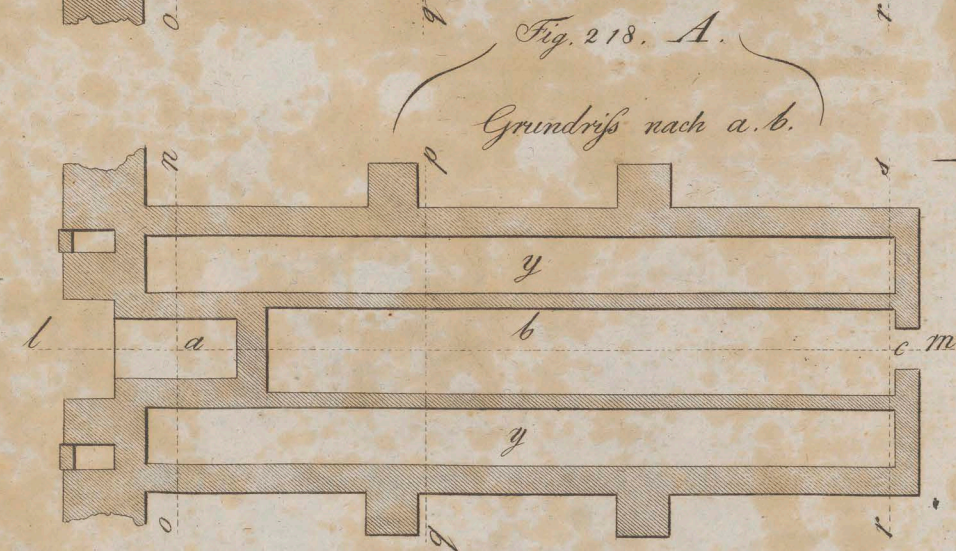 o q r
Fig. 218. A.
Grundriſs nach a. b.
n p s
y
l a b c m
y
o q r